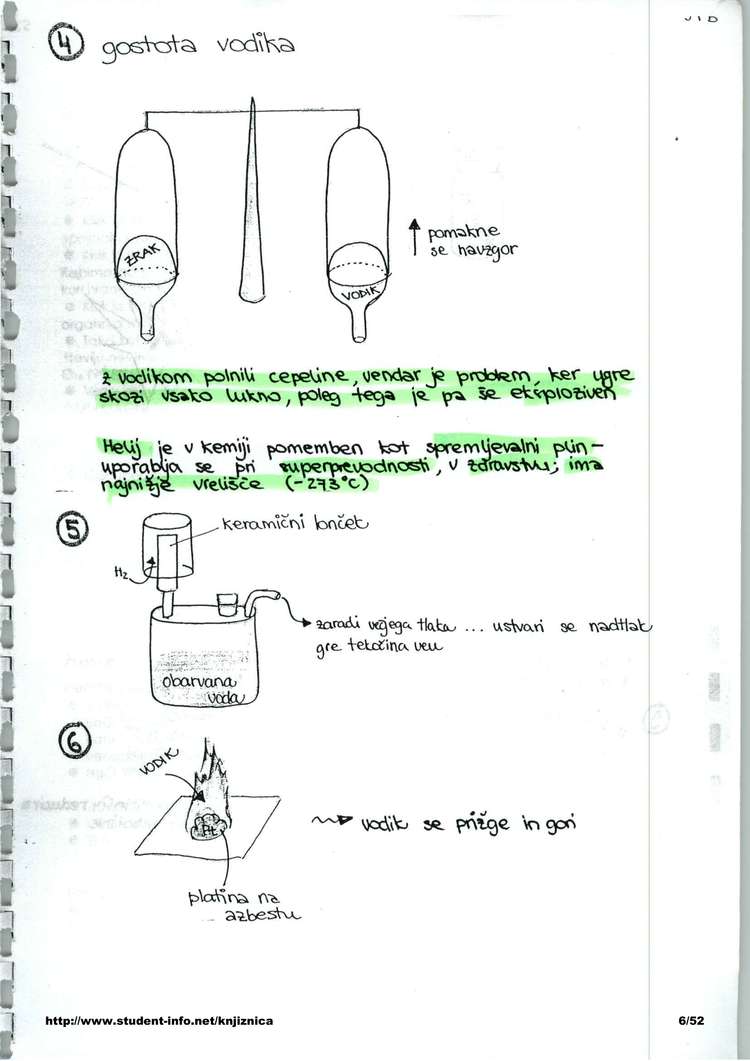 4 gostota vodika
ZRAK
VODIK
pomakne
se navzgor
z vodikom polnili cepeline, vendar je problem, ker ugre
skozi vsako lukno, poleg tega je pa še eksploziven
Helij je v kemiji pomemben kot spremljevalni plin -
uporablja se pri superprevodnosti, v zdravstvu; ima
najnižje vrelišče (-273°C)
5
keramični lonček
H2
zaradi večjega tlaka ... ustvari se nadtlak
gre tekočina ven
obarvana
voda
6
VODIK
Pt
vodik se prižge in gori
platina na
azbestu
http://www.student-info.net/knjiznica
6/52